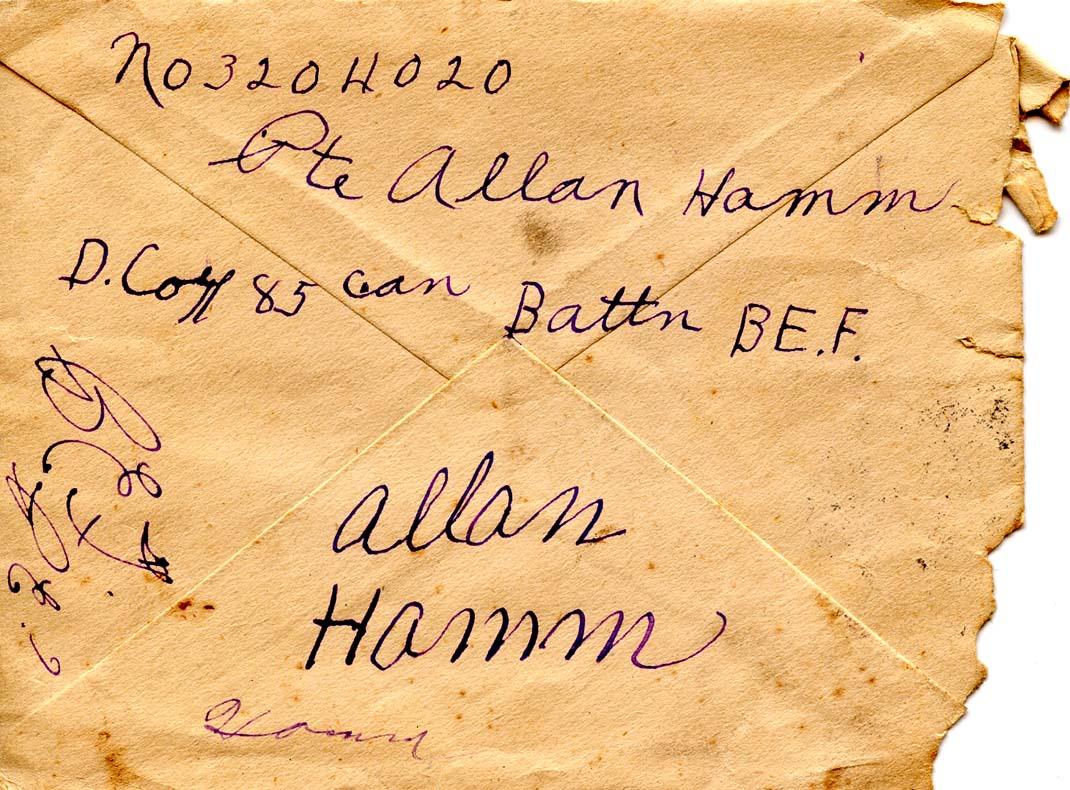 No 3204020
Pte Allan Hamm
D. Coy 85 Can Battn B.E.F.
Allan
Hamm
Hamm